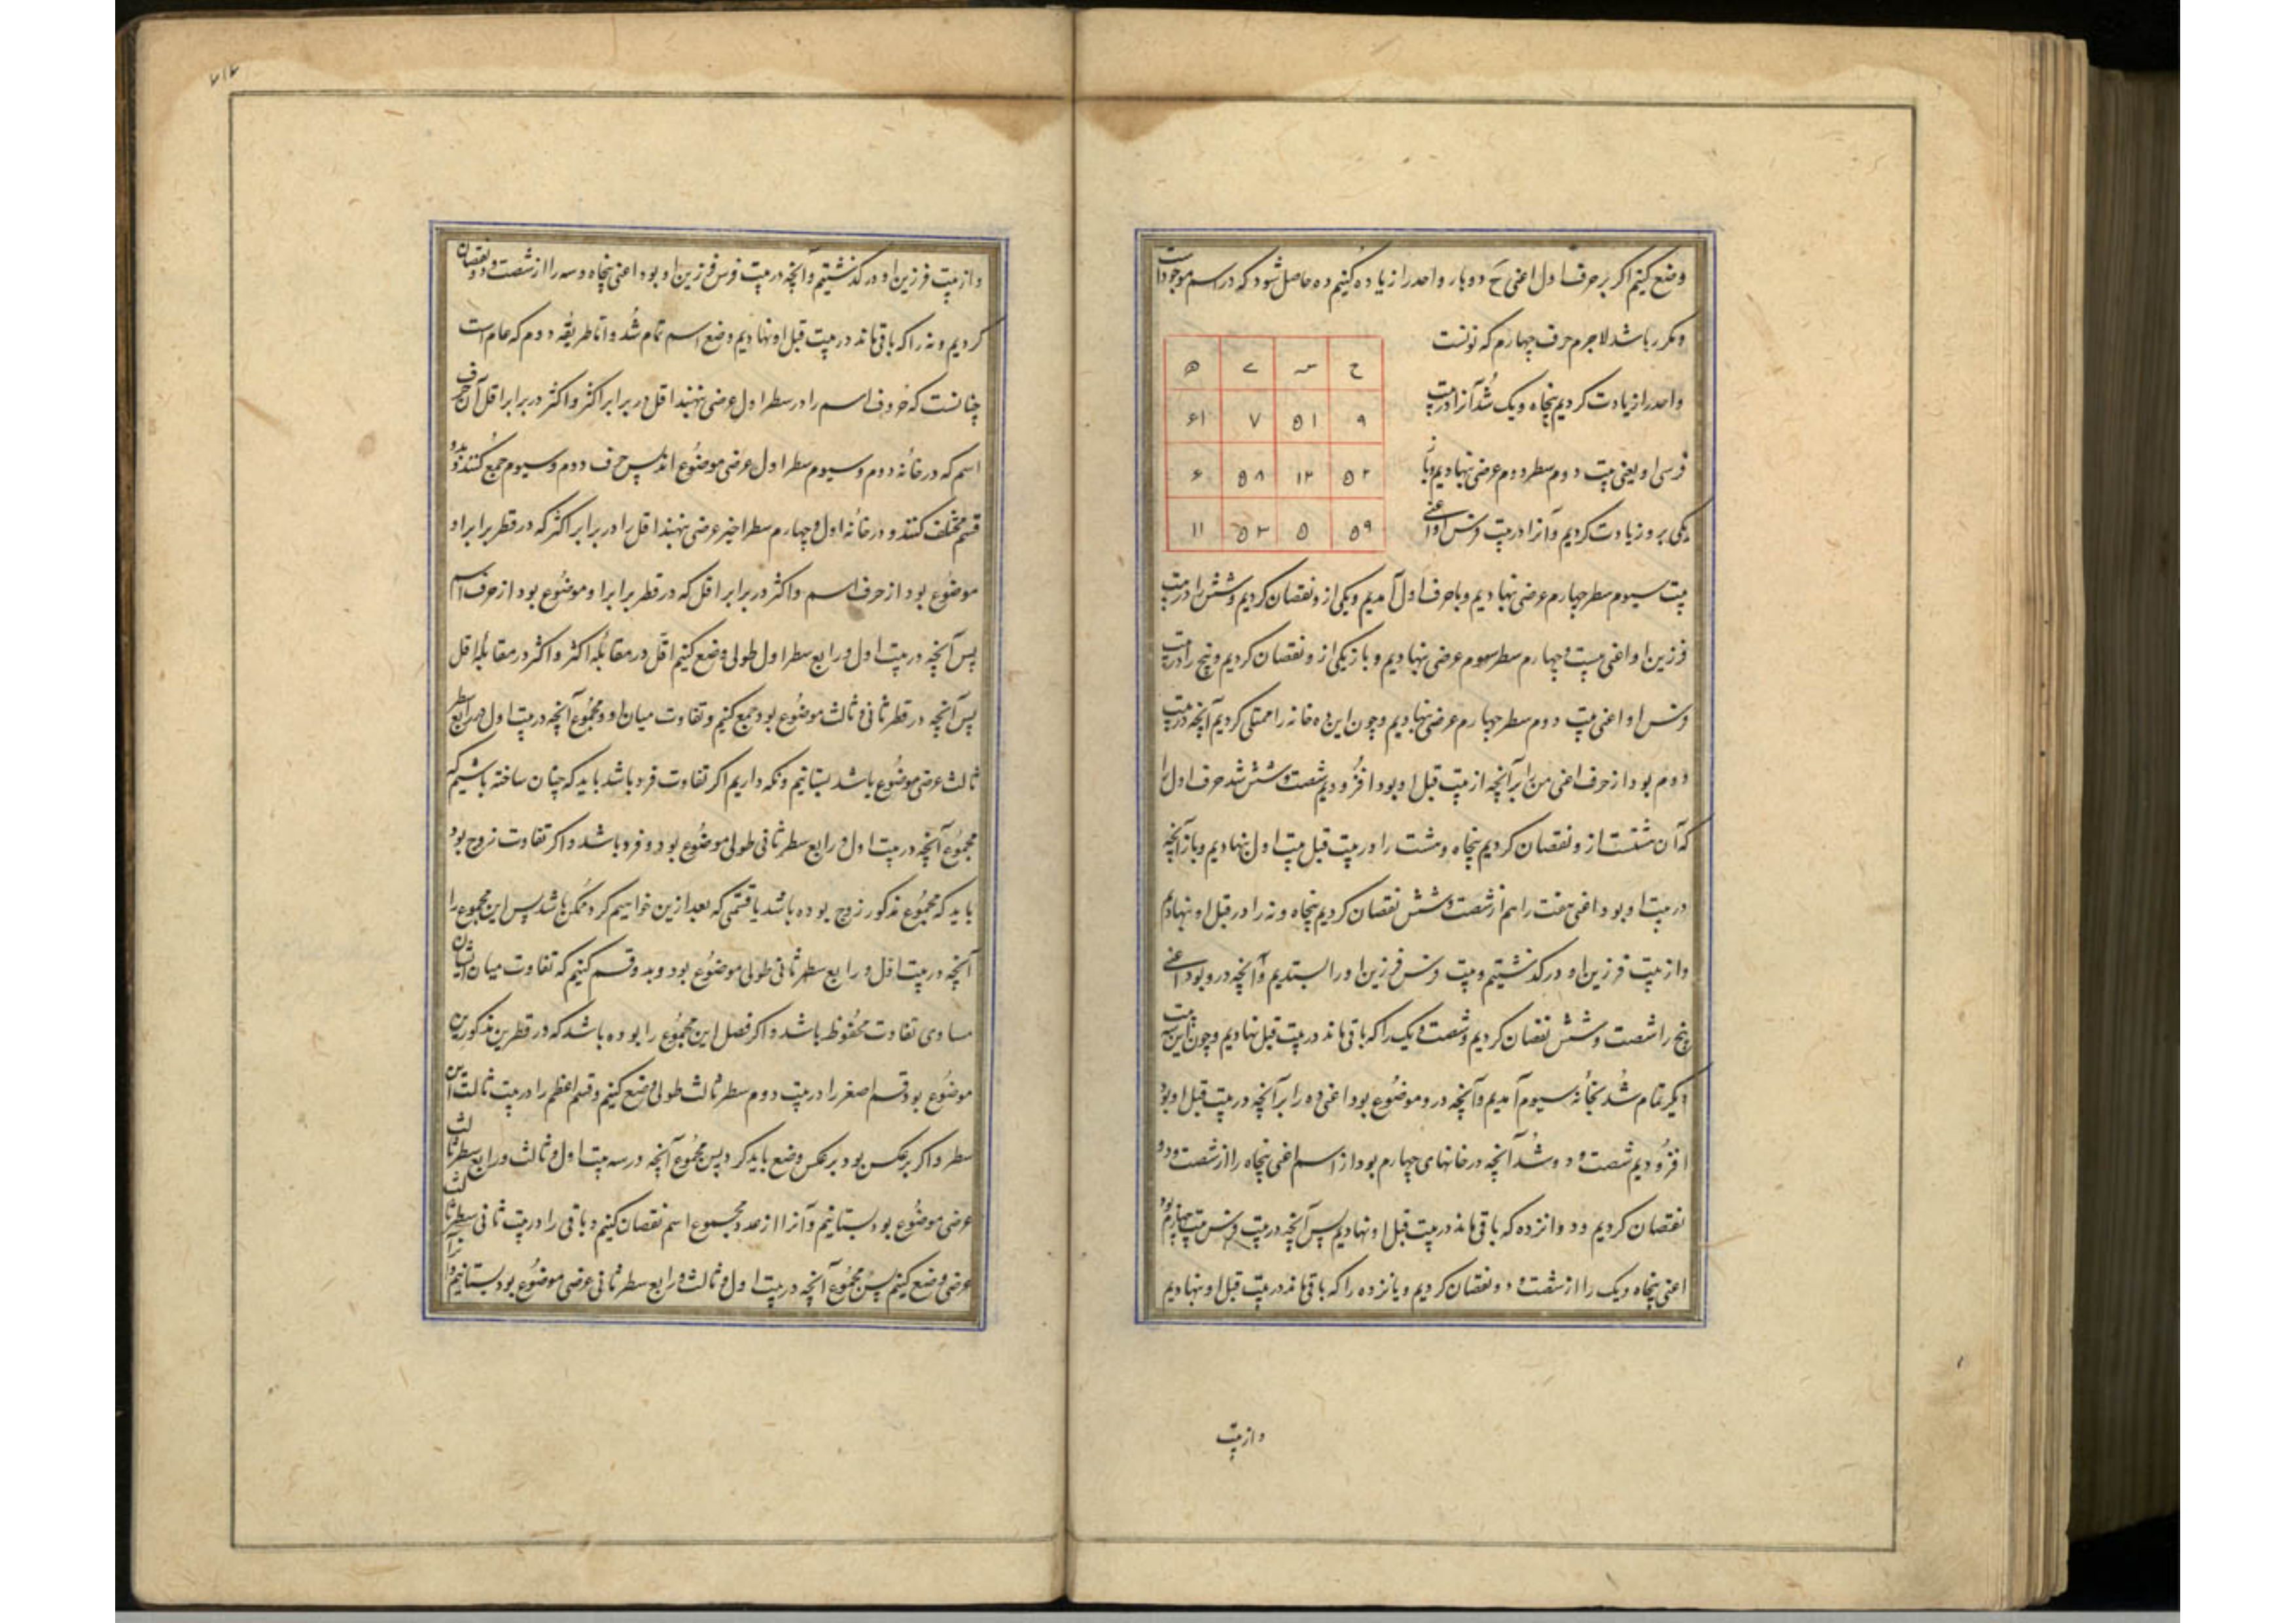 وضع کنیم اکر بر حرف اول اعنی ح دو بار واحد را زیاده کنیم ده حاصل شود که در اسم موجود است
ومکرر باشد لاجرم حرف چهارم که نونست
واحد را زیادت کردیم پنجاه ویک شد آنرا در بیت
فرس او یعنی بیت دوم سطر دوم عرضی نهادیم وباز
یکی برو زیادت کردیم وآنرا در بیت فرس او اعنی
ح س ی ن
۹ ۵۱ ۷ ۶۱
۵۲ ۱۲ ۵۸ ۶
۵۹ ۵ ۵۳ ۱۱
بیت سیوم سطر چهارم عرضی نهادیم وبا حرف اول آمدیم ویکی ازو نقصان کردیم وشش را در بیت
فرزین او اعنی بیت چهارم سطر سوم عرضی نهادیم وباز یکی ازو نقصان کردیم وپنج را در بیت
فرس او اعنی بیت دوم سطر چهارم عرضی نهادیم وچون این ده خانه را ممتلی کردیم آنچه در بیت
دوم بود از حرف اعنی س را بر آنچه از بیت قبل او بود افزودیم شصت وشش شد حرف اول را
که آن هشتست ازو نقصان کردیم پنجاه وهشت را در بیت قبل بیت اول نهادیم وباز آنچه
در بیت او بود اعنی هفت را هم از شصت وشش نقصان کردیم پنجاه ونه را در قبل او نهادیم
واز بیت فرزین او در کذشتیم وبیت فرس فرزین او را بستدیم وآنچه درو بود اعنی
پنج را شصت وشش نقصان کردیم وشصت ویک را که باقی ماند در بیت قبل نهادیم وچون این سه بیت
دیکر تمام شد بخانه سیوم آمدیم وآنچه درو موضوع بود اعنی ده را بر آنچه در بیت قبل او بود
افزودیم شصت ودو شد آنچه در خانهای چهارم بود از اسم اعنی پنجاه را از شصت ودو
نقصان کردیم ودوانزده که باقی ماند در بیت قبل او نهادیم پس آنچه در بیت فرس بیت چهارم بود
اعنی پنجاه ویک را از شصت ودو نقصان کردیم ویانزده را که باقی ماند در بیت قبل او نهادیم
واز بیت
۲۱۲
واز بیت فرزین او در کذشتیم وآنچه در بیت فرس فرزین او بود اعنی پنجاه وسه را از شصت ودو نقصان
کردیم ونه را که باقی ماند در بیت قبل او نهادیم وضع اسم تمام شد واما طریقه دوم که عام است
چنانست که حروف اسم را در سطر اول عرضی نهند اقل در برابر اکثر واکثر در برابر اقل آن حرف
اسم که در خانه دوم وسیوم سطر اول عرضی موضوع اند پس حرف دوم وسیوم جمع کنند وبدو
قسم مختلف کنند و در خانه اول وچهارم سطر اخیر عرضی نهند اقل را در برابر اکثر که در قطر برابر او
موضوع بود از حرف اسم واکثر در برابر اقل که در قطر برابر او موضوع بود از حرف اسم
پس آنچه در بیت اول ورابع سطر اول طولی وضع کنیم اقل در مقابله اکثر واکثر در مقابله اقل
پس آنچه در قطر ثانی وثالث موضوع بود جمع کنیم وتفاوت میان او ومجموع آنچه در بیت اول ورابع سطر
ثالث عرضی موضوع باشد بستانیم ونکه داریم اکر تفاوت فرد باشد باید که چنان ساخته باشیم که
مجموع آنچه در بیت اول ورابع سطر ثانی طولی موضوع بود وفرد باشد واکر تفاوت زوج بود
باید که مجموع مذکور زوج بوده باشد یا قسمی که بعد ازین خواهیم کرد ممکن باشد پس این مجموع را
آنچه در بیت اقل ورابع سطر ثانی طولی موضوع بود وبدو قسم کنیم که تفاوت میان ایشان
مساوی تفاوت محفوظ باشد واکر فصل این مجموع را بوده باشد که در قطرین مذکورین
موضوع بود قسم اصغر را در بیت دوم سطر ثالث طولی وضع کنیم وقسم اعظم را در بیت ثالث این
سطر واکر بر عکس بود بر عکس وضع باید کرد پس مجموع آنچه در سه بیت اول وثالث ورابع سطر ثالث
عرضی موضوع بود بستانیم وآنرا از عدد مجموع اسم نقصان کنیم وباقی را در بیت ثانی سطر ثالث
عرضی وضع کنیم پس مجموع آنچه در بیت اول وثالث ورابع سطر ثانی عرضی موضوع بود بستانیم وآنرا